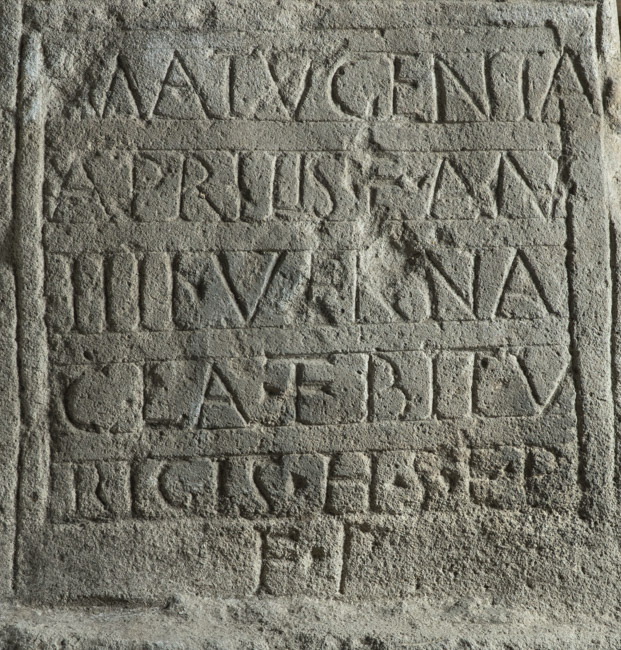 MATVGENIA
APRILIS F AN
IIII VERNA
CLA·F BITV
RIGIS·H·S·E·P
F·